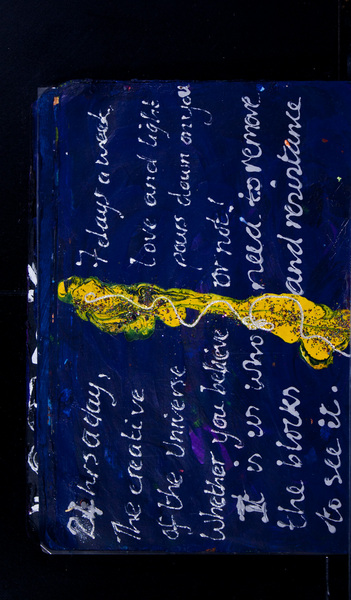 24 hrs a day, 7 days a week
The creative love and light
of the Universe pours down on you
Whether you believe or not!
It is us who need to remove
the blocks and resistance
to see it.